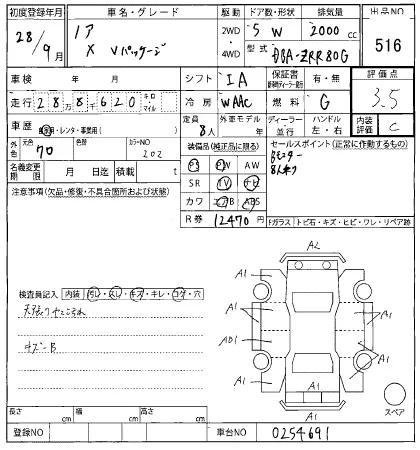 初度登録年月 車名・グレード 駆動 ドア数・形状 排気量 出品NO
28年 9月 ノア 2WD 5 W 2000 cc 516
X Vパッケージ 4WD 型式 DBA-ZRR80G
車検 年 月 シフト IA 保証書 有・無 評価点
走行 288620 キロ マイル 冷房 WAAC 燃料 G 3.5
車歴 自家・レンタ・事業用( ) 定員 8人 外車モデル 年 ディーラー 並行 ハンドル 左・右 内装評価 C
外色 元色 70 色替 カラーNO 202 装備品(純正品に限る) セールスポイント(正常に作動するもの)
名義変更期限 月 日迄 積載 t PS PW AW
8人乗り
注意事項(欠品・修復・不具合箇所および状態) SR TV ナビ
カワ エアB ABS
R券 12470円 Fガラス トビ石・キズ・ヒビ・ワレ・リペア跡
A2
A1 A1
検査員記入 内装 汚れ・スレ・キズ・キレ・コゲ・穴
A1 A1
AD1 A1
キズーB
A1 A1
A1
A1 スペア
長さ cm 幅 cm 高さ cm
登録NO 車台NO 0254691